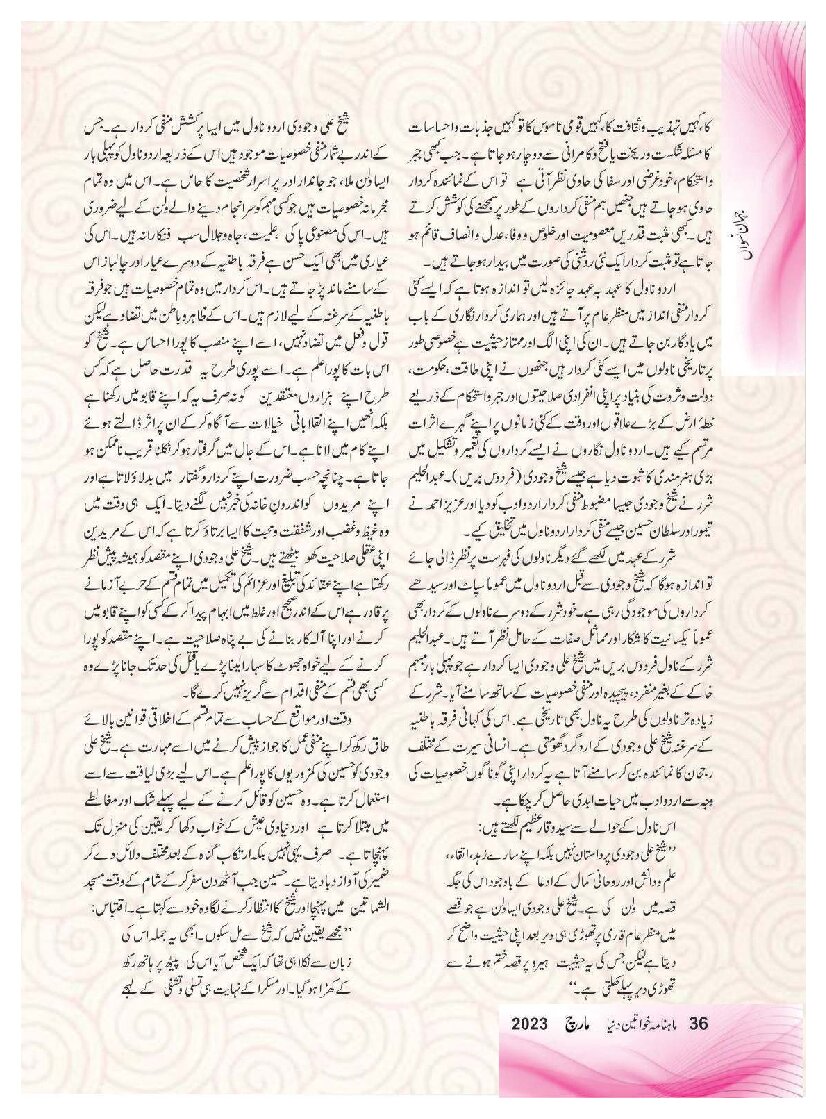 کا، کہیں تہذیب و ثقافت کا، کہیں قومی ناموس کا تو کہیں جذبات و احساسات
کا مسئلہ شکست و ریخت یا فتح و کامرانی سے دوچار ہو جاتا ہے۔ جب کبھی جبر
واستحکام، خود غرضی اور سفا کی حاوی نظر آتی ہے تو اس کے نمائندہ کردار
حاوی ہو جاتے ہیں جنھیں ہم منفی کرداروں کے طور پر سمجھنے کی کوشش کرتے
ہیں۔ بھی مثبت قدریں معصومیت اور خلوص و وفا، عدل و انصاف قائم ہو
جاتا ہے تو مثبت کردار ایک نئی روشنی کی صورت میں بیدار ہو جاتے ہیں۔
اردو ناول کا عہد بہ عہد جائزہ لیں تو اندازہ ہوتا ہے کہ ایسے کئی
کردار منفی انداز میں منظر عام پر آتے ہیں اور ہماری کردار نگاری کے باب
میں یادگار بن جاتے ہیں۔ ان کی اپنی الگ اور ممتاز حیثیت ہے خصوصی طور
پر تاریخی ناولوں میں ایسے کئی کردار ہیں جنھوں نے اپنی طاقت، حکومت،
دولت و ثروت کی بنیاد پر اپنی انفرادی صلاحیتوں اور جبر و استحکام کے ذریعے
خطۂ ارض کے بڑے علاقوں اور وقت کے کئی زمانوں پر اپنے گہرے اثرات
مرتسم کیے ہیں۔ اردو ناول نگاروں نے ایسے کرداروں کی تعمیر و تشکیل میں
بڑی ہنر مندی کا ثبوت دیا ہے جیسے شیخ وجودی (فردوس بریں)۔ عبدالحلیم
شرر نے شیخ وجودی جیسا مضبوط منفی کردار اردو ادب کو دیا اور عزیز احمد نے
تیمور اور سلطان حسین جیسے منفی کردار اردو ناول میں تخلیق کیے۔
شرر کے عہد میں لکھے گئے دیگر ناولوں کی فہرست پر نظر ڈالی جائے
تو اندازہ ہوگا کہ شیخ وجودی سے قبل اردو ناول میں عموماً سپاٹ اور سیدھے
کرداروں کی موجودگی رہی ہے۔ خود شرر کے دوسرے ناولوں کے کردار بھی
عموماً یکسانیت کا شکار اور مماثل صفات کے حامل نظر آتے ہیں۔ عبدالحلیم
شرر کے ناول فردوس بریں میں شیخ علی وجودی ایسا کردار ہے جو پہلی بار مبہم
خاکے کے بغیر منفرد، پیچیدہ اور منفی خصوصیات کے ساتھ سامنے آیا۔ شرر کے
زیادہ تر ناولوں کی طرح یہ ناول بھی تاریخی ہے۔ اس کی کہانی فرقہ باطنیہ
کے سرغنہ شیخ علی وجودی کے اردگرد گھومتی ہے۔ انسانی سیرت کے مختلف
رجحان کا نمائندہ بن کر سامنے آتا ہے یہ کردار اپنی گوناگوں خصوصیات کی
وجہ سے اردو ادب میں حیات ابدی حاصل کر چکا ہے۔
اس ناول کے حوالے سے سید وقار عظیم لکھتے ہیں:
”شیخ علی وجودی پر داستان نہیں بلکہ اپنے سارے زہد، اتقاء،
علم و دانش اور روحانی کمال کے ادعا کے باوجود اس کی جگہ
قصہ میں ولن کی ہے۔ شیخ علی وجودی ایسا ولن ہے جو قصے
میں منظر عام قاری پر تھوڑی ہی دیر بعد اپنی حیثیت واضح کر
دیتا ہے لیکن جس کی یہ حیثیت ہیرو پر قصہ ختم ہونے سے
تھوڑی دیر پہلے کھلتی ہے۔“
شیخ علی وجودی اردو ناول میں ایسا پرکشش منفی کردار ہے۔ جس
کے اندر بے شمار منفی خصوصیات موجود ہیں اس کے ذریعہ اردو ناول کو پہلی بار
ایسا ولن ملا، جو جاندار اور پر اسرار شخصیت کا حامل ہے۔ اس میں وہ تمام
مجرمانہ خصوصیات ہیں جو کسی مہم کو سرانجام دینے والے ولن کے لیے ضروری
ہیں۔ اس کی مصنوعی پاکی، علمیت، جاہ و جلال سب فنکارانہ ہیں۔ اس کی
عیاری میں بھی ایک حسن ہے فرقہ باطنیہ کے دوسرے عیار اور چالباز اس
کے سامنے ماند پڑ جاتے ہیں۔ اس کردار میں وہ تمام خصوصیات ہیں جو فرقہ
باطنیہ کے سرغنہ کے لیے لازم ہیں۔ اس کے ظاہر و باطن میں تضاد ہے لیکن
قول و فعل میں تضاد نہیں، اسے اپنے منصب کا پورا احساس ہے۔ شیخ کو
اس بات کا پورا علم ہے۔ اسے پوری طرح یہ قدرت حاصل ہے کہ کس
طرح اپنے ہزاروں معتقدین کو نہ صرف یہ کہ اپنے قابو میں رکھنا ہے
بلکہ انھیں اپنے انقلاباتی خیالات سے آگاہ کر کے ان پر اثر ڈالتے ہوئے
اپنے کام میں لانا ہے۔ اس کے جال میں گرفتار ہو کر نکلنا قریب ناممکن ہو
جاتا ہے۔ چنانچہ حسب ضرورت اپنے کردار و گفتار میں بدلاؤ لاتا ہے اور
اپنے مریدوں کو اندرون خانہ کی خبر نہیں لگنے دیتا۔ ایک ہی وقت میں
وہ غیظ و غضب اور شفقت و محبت کا ایسا برتاؤ کرتا ہے کہ اس کے مریدین
اپنی عقلی صلاحیت کھو بیٹھتے ہیں۔ شیخ علی وجودی اپنے مقصد کو ہمیشہ پیش نظر
رکھتا ہے اپنے عقائد کی تبلیغ اور عزائم کی تکمیل میں تمام قسم کے حربے آزمانے
پر قادر ہے اس کے اندر صحیح اور غلط میں ابہام پیدا کر کے کسی کو اپنے قابو میں
کرنے اور اپنا آلہ کار بنانے کی بے پناہ صلاحیت ہے۔ اپنے مقصد کو پورا
کرنے کے لیے خواہ جھوٹ کا سہارا لینا پڑے یا قتل کی حد تک جانا پڑے وہ
کسی بھی قسم کے منفی اقدام سے گریز نہیں کرے گا۔
وقت اور مواقع کے حساب سے تمام قسم کے اخلاقی قوانین بالائے
طاق رکھ کر اپنے منفی عمل کا جواز پیش کرنے میں اسے مہارت ہے۔ شیخ علی
وجودی کو حسین کی کمزوریوں کا پورا علم ہے۔ اس لیے بڑی لیاقت سے اسے
استعمال کرتا ہے۔ وہ حسین کو قائل کرنے کے لیے پہلے شک اور مغالطے
میں مبتلا کرتا ہے اور دنیاوی عیش کے خواب دکھا کر یقین کی منزل تک
پہنچاتا ہے۔ صرف یہی نہیں بلکہ ارتکاب گناہ کے بعد مختلف دلائل دے کر
ضمیر کی آواز دبا دیتا ہے۔ حسین جب آٹھ دن سفر کر کے شام کے وقت مسجد
الشماتین میں پہنچا اور شیخ کا انتظار کرنے لگا وہ خود سے کہتا ہے۔ اقتباس:
”مجھے یقین نہیں کہ شیخ سے مل سکوں۔ ابھی یہ جملہ اس کی
زبان سے نکلا ہی تھا کہ ایک شخص آیا اس کی پیٹھ پر ہاتھ رکھ
کے کھڑا ہو گیا۔ اور مسکرا کے نہایت ہی تسلی و تشفی کے لہجے
جہان نسواں
36 ماہنامہ خواتین دنیا مارچ 2023